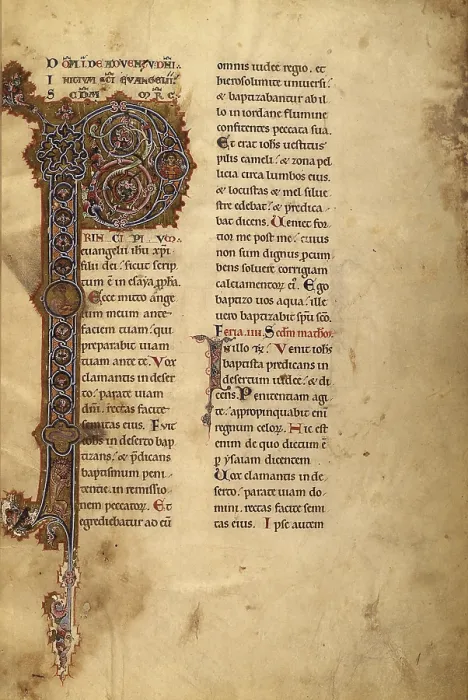 DOM̄ I. DE ADVENTV DN̄I.
INITIVM SC̄I EVANGELII
S C̄DM M̄RC̄
PRINCIPIVM
euangelii ihu xp̄i
filii dei. sicut scrip
tum ē in esaya ꝓpħa.
Ecce mitto ange
lum meum ante
faciem tuam. qui
preparabit uiam
tuam ante te. Vox
clamantis in deser
to. parate uiam
dn̄i. rectas facite
semitas eius. Fuit
ioħs in deserto bap
tizans. & p̄dicans
baptismum peni
tentie. in remissio
nem peccatoꝝ. Et
egrediebatur ad eū
omnis iudee regio. et
hierosolimite uniuersi.
& baptizabantur ab il
lo in iordane flumine
confitentes peccata sua.
Et erat ioħs uestitus
pilis cameli. & zona pel
licia circa lumbos eius.
& locustas & mel silue
stre edebat. & predica
bat dicens. Ueniet for
tior me post me. cuius
non sum dignus ꝓcum
bens soluere corrigiam
calciamentoꝝ ei᾿. Ego
baptizo uos aqua. ille
uero baptizabit sp̄u sc̄o.
Feria .iiii. Scd̄m matheū.
In illo t̄r. Venit ioħs
baptista predicans in
desertum iudee. & di
cens. Penitentiam agi
te. appropinquabit eni᾿
regnum celoꝝ. Hic est
enim de quo dictum ē
ꝑ ysaiam dicentem
Uox clamantis in de
serto. parate uiam do
mini. rectas facite semi
tas eius. Ipse autem